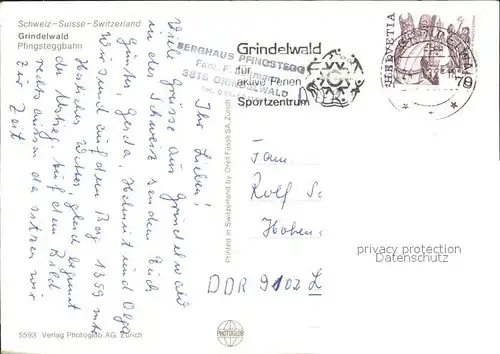 Schweiz-Suisse-Switzerland
Grindelwald
Pfingsteggbahn
BERGHAUS PFINGSTEGG
3818 GRINDELWALD
Grindelwald
für
aktive Ferien
Sportzentrum
HELVETIA
79
Ihr Lieben!
Viele Grüsse aus Grindelwald
in der Schweiz senden Euch
Günter, Gerda, und Olga
Wir sind auf dem Berg 1359 mtr
Herrliches Wetter, gleich beginnt
der Abstieg. Auf dem Bild
rechts aussen da sitzen wir
zur Zeit
Fam.
Rolf Sc
Hohen
DDR 9102 L
privacy protection
Datenschutz
Printed in Switzerland by Orell Füssli SA Zürich
5593 Verlag Photoglob AG, Zürich
PHOTOGLOB